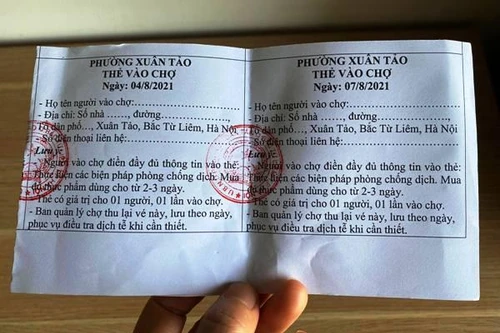 PHƯỜNG XUÂN TẢO
THẺ VÀO CHỢ
Ngày: 04/8/2021
- Họ tên người vào chợ:
- Địa chỉ: Số nhà ......, đường
Tổ dân phố..., Xuân Tảo, Bắc Từ Liêm, Hà Nội
- Số điện thoại liên hệ:
Lưu ý:
- Người vào chợ điền đầy đủ thông tin vào thẻ:
Thực hiện các biện pháp phòng chống dịch. Mua
đủ thực phẩm dùng cho từ 2-3 ngày.
Thẻ có giá trị cho 01 người, 01 lần vào chợ.
- Ban quản lý chợ thu lại vé này, lưu theo ngày,
phục vụ điều tra dịch tễ khi cần thiết.
PHƯỜNG XUÂN TẢO
THẺ VÀO CHỢ
Ngày: 07/8/2021
- Họ tên người vào chợ:
- Địa chỉ: Số nhà ......, đường
Tổ dân phố..., Xuân Tảo, Bắc Từ Liêm, Hà Nội
- Số điện thoại liên hệ:
Lưu ý:
- Người vào chợ điền đầy đủ thông tin vào thẻ:
Thực hiện các biện pháp phòng chống dịch. Mua
đủ thực phẩm dùng cho từ 2-3 ngày.
Thẻ có giá trị cho 01 người, 01 lần vào chợ.
- Ban quản lý chợ thu lại vé này, lưu theo ngày,
phục vụ điều tra dịch tễ khi cần thiết.